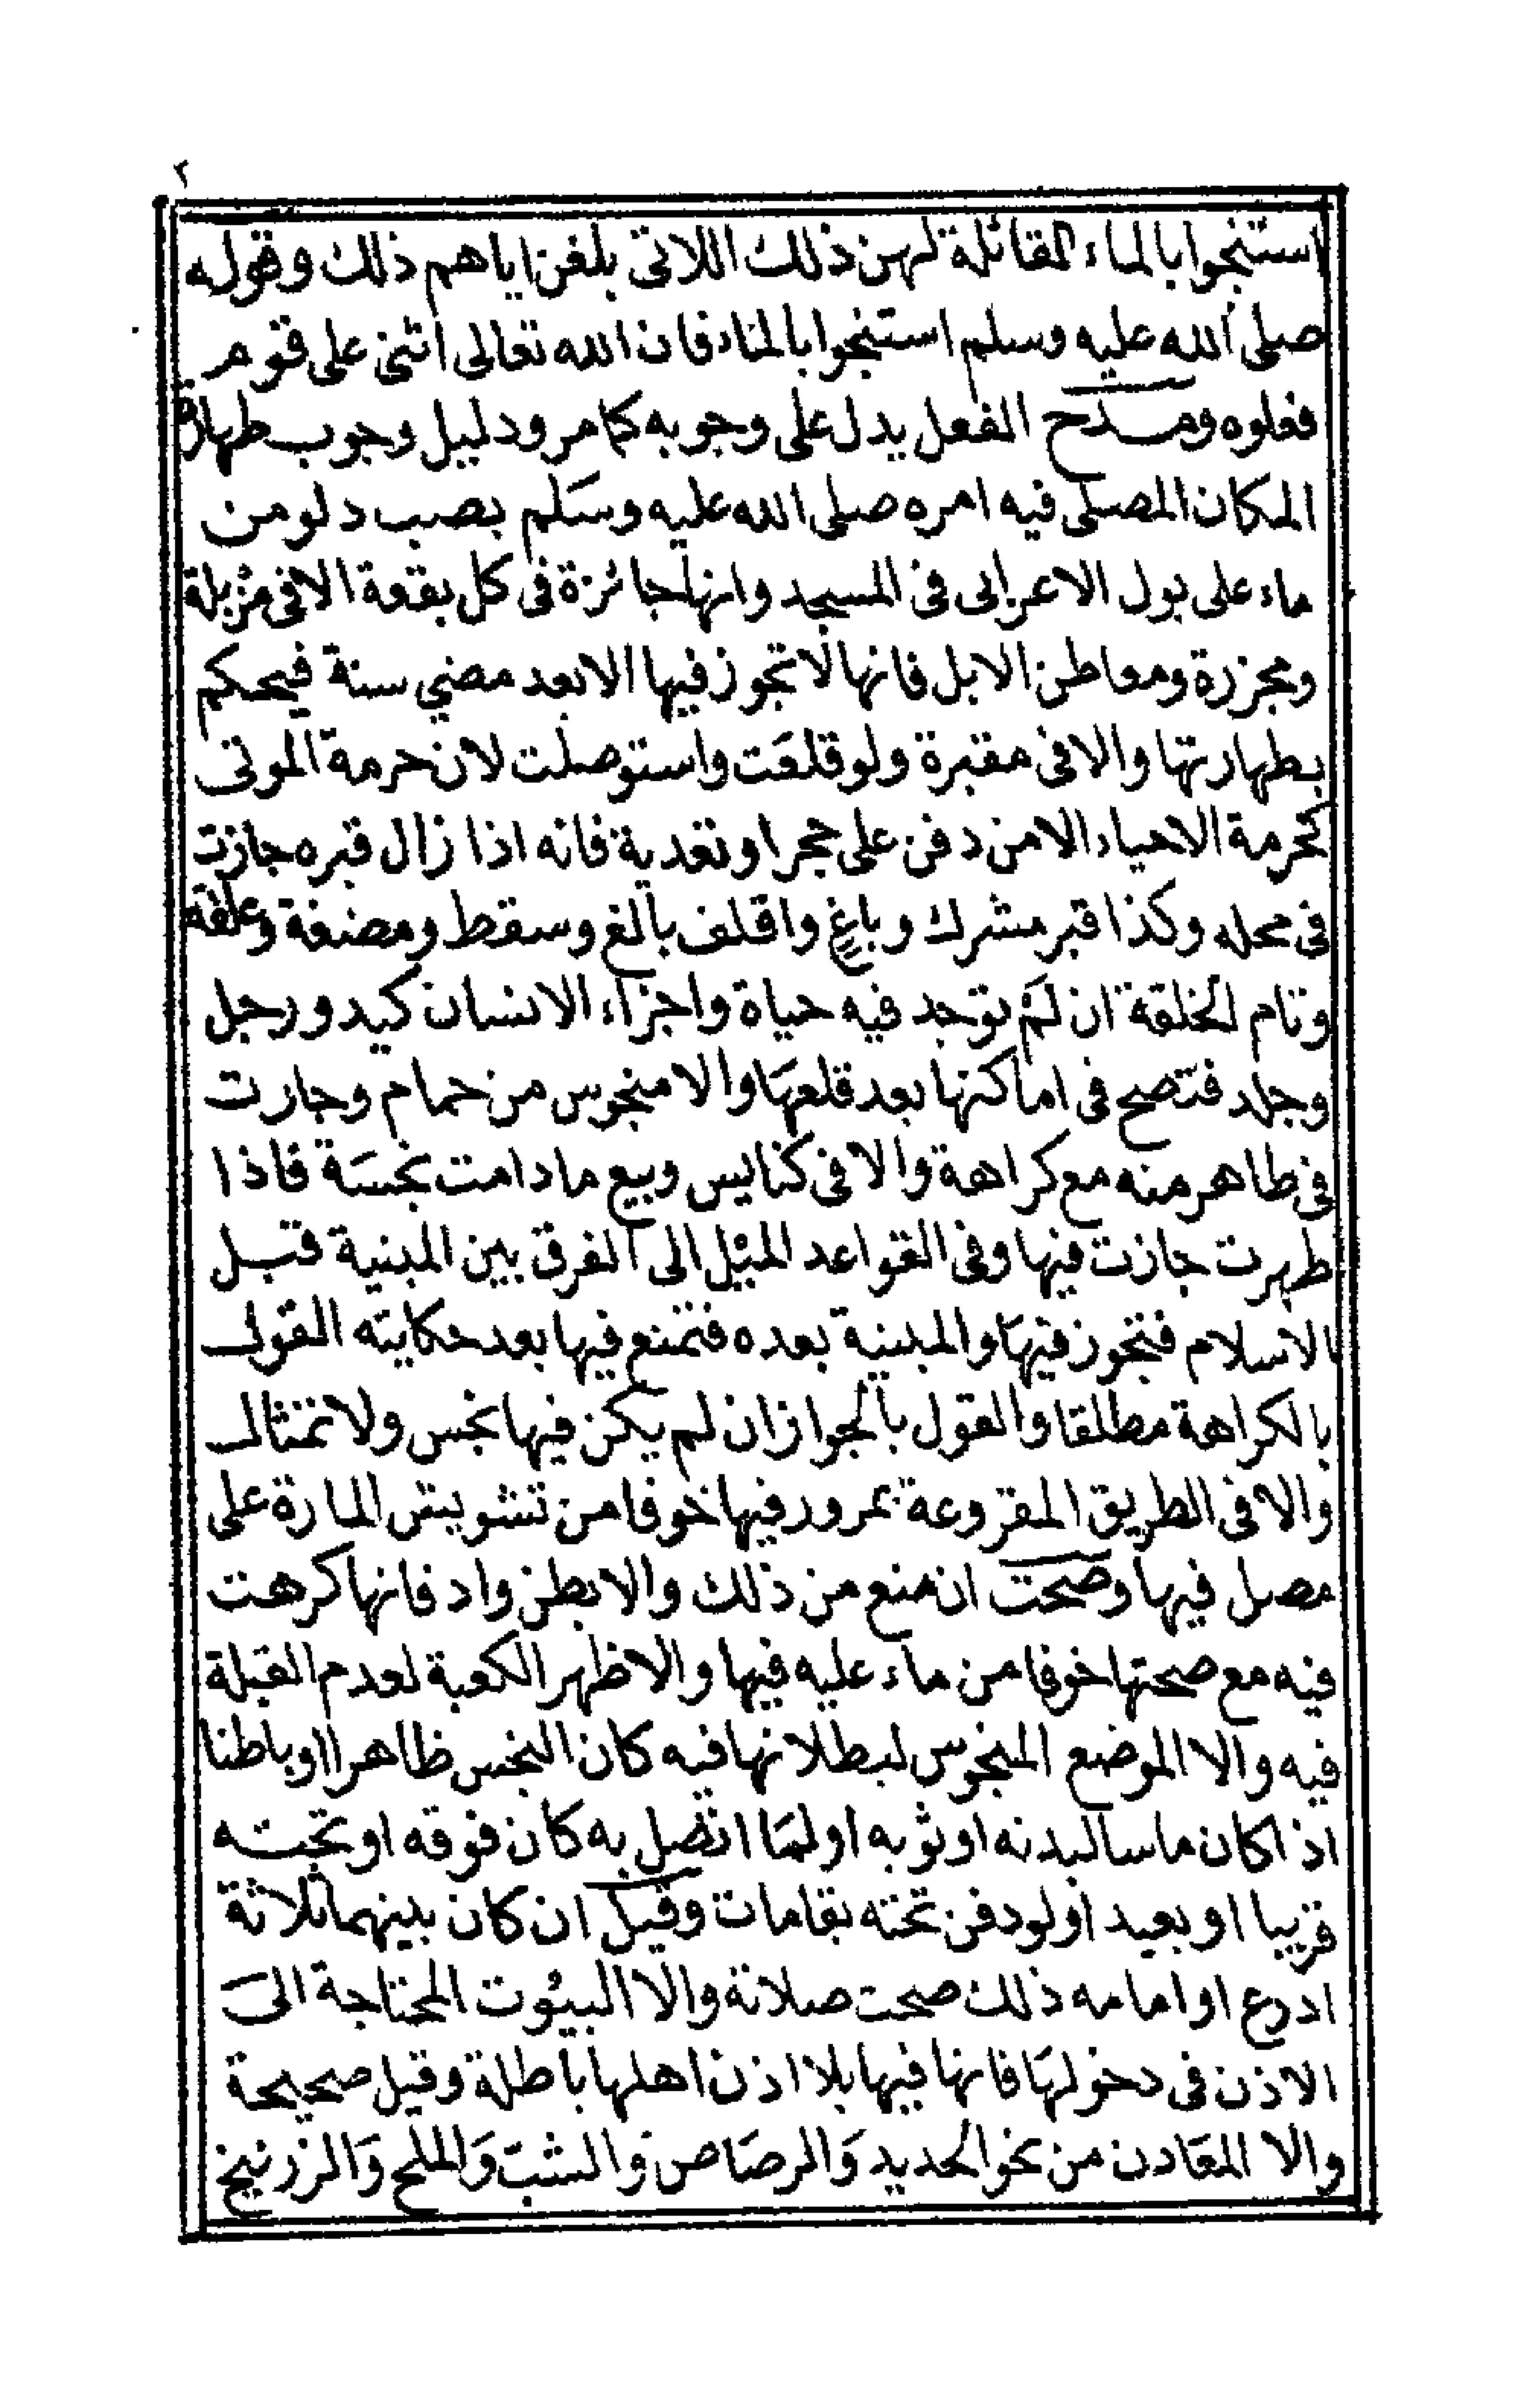 ٢
استنجوا بالماء القائلة لهن ذلك اللاتى بلغن اياهم ذلك وقوله
صلى الله عليه وسلم استنجوا بالماء فان الله تعالى اثنى على قوم
فعلوه ومدح الفعل يدل على وجوبه كما مر ودليل وجوب طهارة
المكان المصلى فيه امره صلى الله عليه وسلم بصب دلو من
ماء على بول الاعرابى فى المسجد وانها جائزة فى كل بقعة الا فى مزبلة
ومجزرة ومعاطن الابل فانها لا تجوز فيها الا بعد مضي سنة فيحكم
بطهارتها والا فى مقبرة ولو قلعت واستوصلت لان حرمة الموتى
كحرمة الاحياء الا من دفن على حجر او تعدية فانه اذا زال قبره جازت
فى محله وكذا قبر مشرك وباغٍ واقلف بالغ وسقط ومضغة وعلقة
وتام الخلقة ان لم توجد فيه حياة واجزاء الانسان كيد ورجل
وجلد فتصح فى اماكنها بعد قلعها والا منجوس من حمام وجازت
فى طاهر منه مع كراهة والا فى كنايس وبيع ما دامت نجسة فاذا
طهرت جازت فيها وفى القواعد الميل الى الفرق بين المبنية قبل
الاسلام فتجوز فيها والمبنية بعده فتمنع فيها بعد حكايته القول
بالكراهة مطلقا والقول بالجواز ان لم يكن فيها نجس ولا تمثال
والا فى الطريق المقروعة بمرور فيها خوفا من تشويش المارة على
مصل فيها وصحت ان منع من ذلك والا بطن واد فانها كرهت
فيه مع صحتها خوفا من ماء عليه فيها والا ظهر الكعبة لعدم القبلة
فيه والا الموضع المنجوس لبطلانها فيه كان النجس ظاهرا او باطنا
اذا كان ماسا لبدنه او ثوبه او لما اتصل به كان فوقه او تحته
قريبا او بعيد او لو دفن تحته بقامات وقيل ان كان بينهما ثلاثة
ادرع او امامه ذلك صحت صلاته والا البيوت المحتاجة الى
الاذن فى دخولها فانها فيها بلا اذن اهلها باطلة وقيل صحيحة
والا المعادن من نحو الحديد والرصاص والشب والملح والزرنيخ